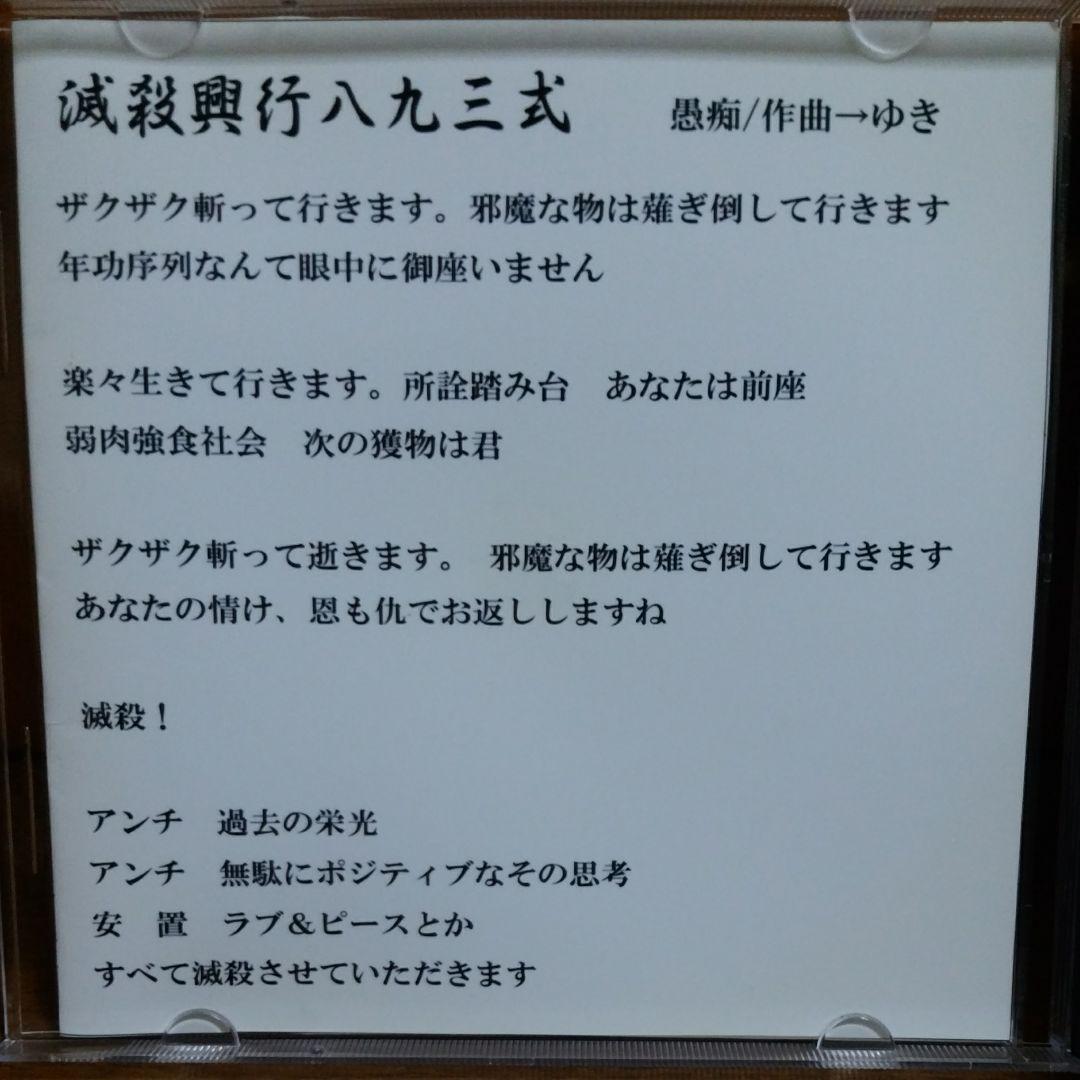 滅殺興行八九三式　愚痴/作曲→ゆき
ザクザク斬って行きます。邪魔な物は薙ぎ倒して行きます
年功序列なんて眼中に御座いません
楽々生きて行きます。所詮踏み台　あなたは前座
弱肉強食社会　次の獲物は君
ザクザク斬って逝きます。　邪魔な物は薙ぎ倒して行きます
あなたの情け、恩も仇でお返ししますね
滅殺！
アンチ　過去の栄光
アンチ　無駄にポジティブなその思考
安　置　ラブ＆ピースとか
すべて滅殺させていただきます